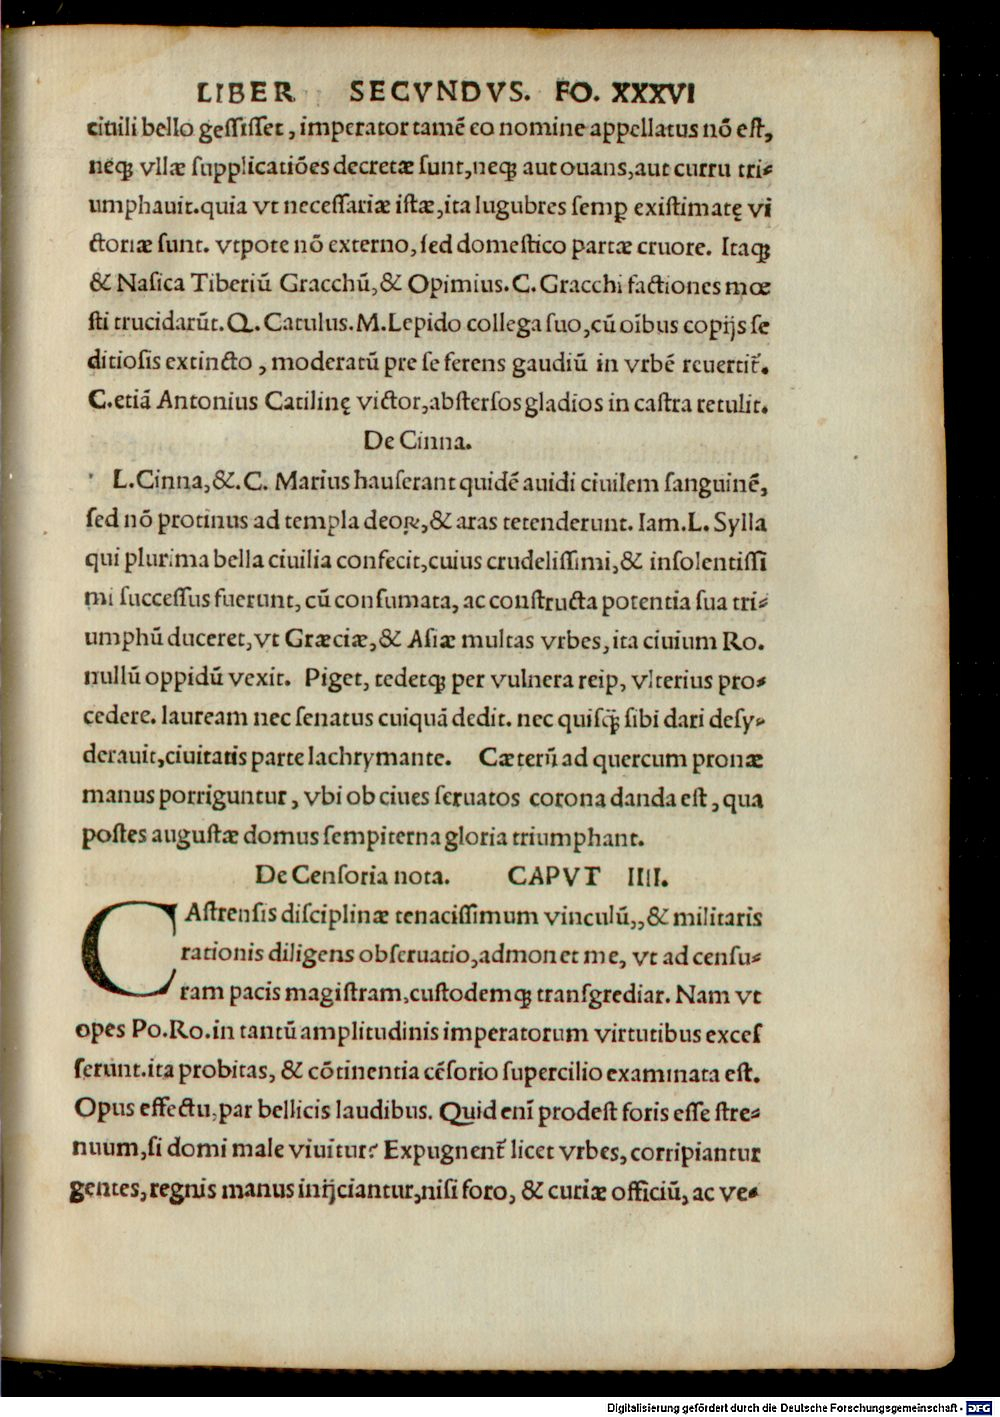 LIBER SECVNDVS. FO. XXXVI
ciuili bello geſſiſſet, imperator tamē eo nomine appellatus nō eſt,
neqꝫ vllæ ſupplicatiōes decretæ ſunt,neqꝫ aut ouans,aut curru tri-
umphauit.quia vt neceſſariæ iſtæ,ita lugubres ſemꝑ exiſtimatę vi
ctoriæ ſunt. vtpote nō externo, ſed domeſtico partæ cruore. Itaqꝫ
& Naſica Tiberiū Gracchū,& Opimius.C.Gracchi factiones mœ
ſti trucidarūt.Q.Catulus.M.Lepido collega ſuo,cū oībus copijs ſe
ditioſis extincto, moderatū pre ſe ferens gaudiū in vrbē reuertit̃.
C.etiā Antonius Catilinę victor,abſterſos gladios in caſtra retulit.
De Cinna.
L.Cinna,&.C. Marius hauſerant quidē auidi ciuilem ſanguinē,
ſed nō protinus ad templa deoꝝ,& aras tetenderunt. Iam.L. Sylla
qui plurima bella ciuilia confecit,cuius crudeliſſimi,& inſolentiſſi
mi ſucceſſus fuerunt, cū conſumata, ac conſtructa potentia ſua tri-
umphū duceret,vt Græciæ,& Aſiæ multas vrbes,ita ciuium Ro.
nullū oppidū vexit. Piget, tedetqꝫ per vulnera reip, vlterius pro-
cedere. lauream nec ſenatus cuiquā dedit. nec quiſqꝫ̃ ſibi dari deſy-
derauit,ciuitatis parte lachrymante. Cæterū ad quercum pronæ
manus porriguntur, vbi ob ciues ſeruatos corona danda eſt, qua
poſtes auguſtæ domus ſempiterna gloria triumphant.
De Cenſoria nota. CAPVT IIII.
CAſtrenſis diſciplinæ tenaciſſimum vinculū,,& militaris
rationis diligens obſeruatio,admonet me, vt ad cenſu-
ram pacis magiſtram,cuſtodemqꝫ tranſgrediar. Nam vt
opes Po.Ro.in tantū amplitudinis imperatorum virtutibus exceſ
ſerunt.ita probitas, & cōtinentia cēſorio ſupercilio examinata eſt.
Opus effectu,par bellicis laudibus. Quid enī prodeſt foris eſſe ſtre-
nuum,ſi domi male viuitur? Expugnent̃ licet vrbes, corripiantur
gentes,regnis manus inijciantur,niſi foro, & curiæ officiū, ac ve-
Digitalisierung gefördert durch die Deutsche Forschungsgemeinschaft - DFG